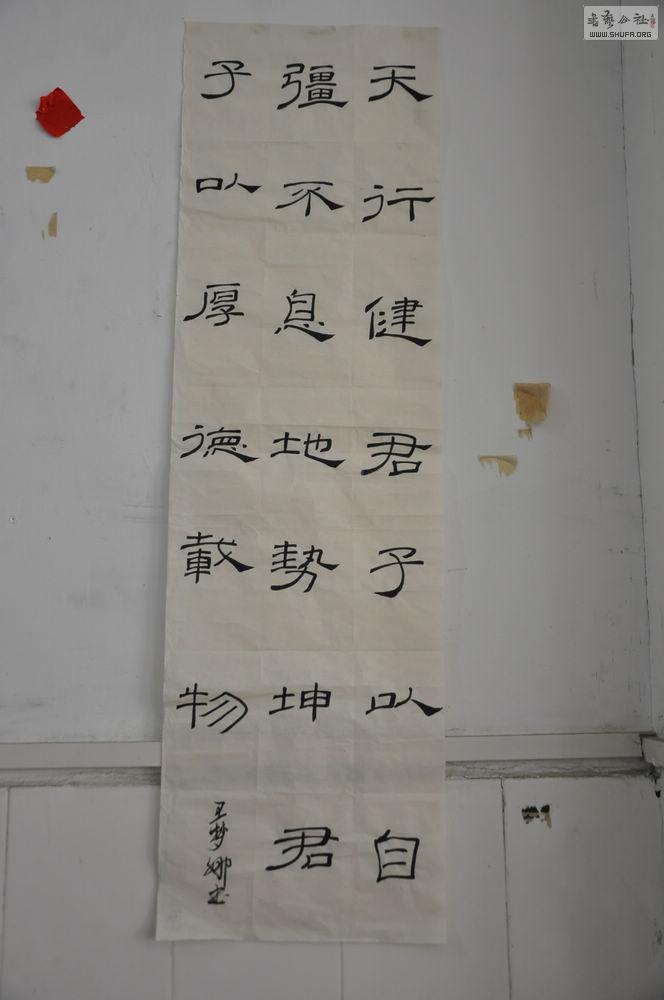 天行健君子以自
彊不息地勢坤君
子以厚德載物
王梦娜书
书艺公社
WWW.SHUFA.ORG